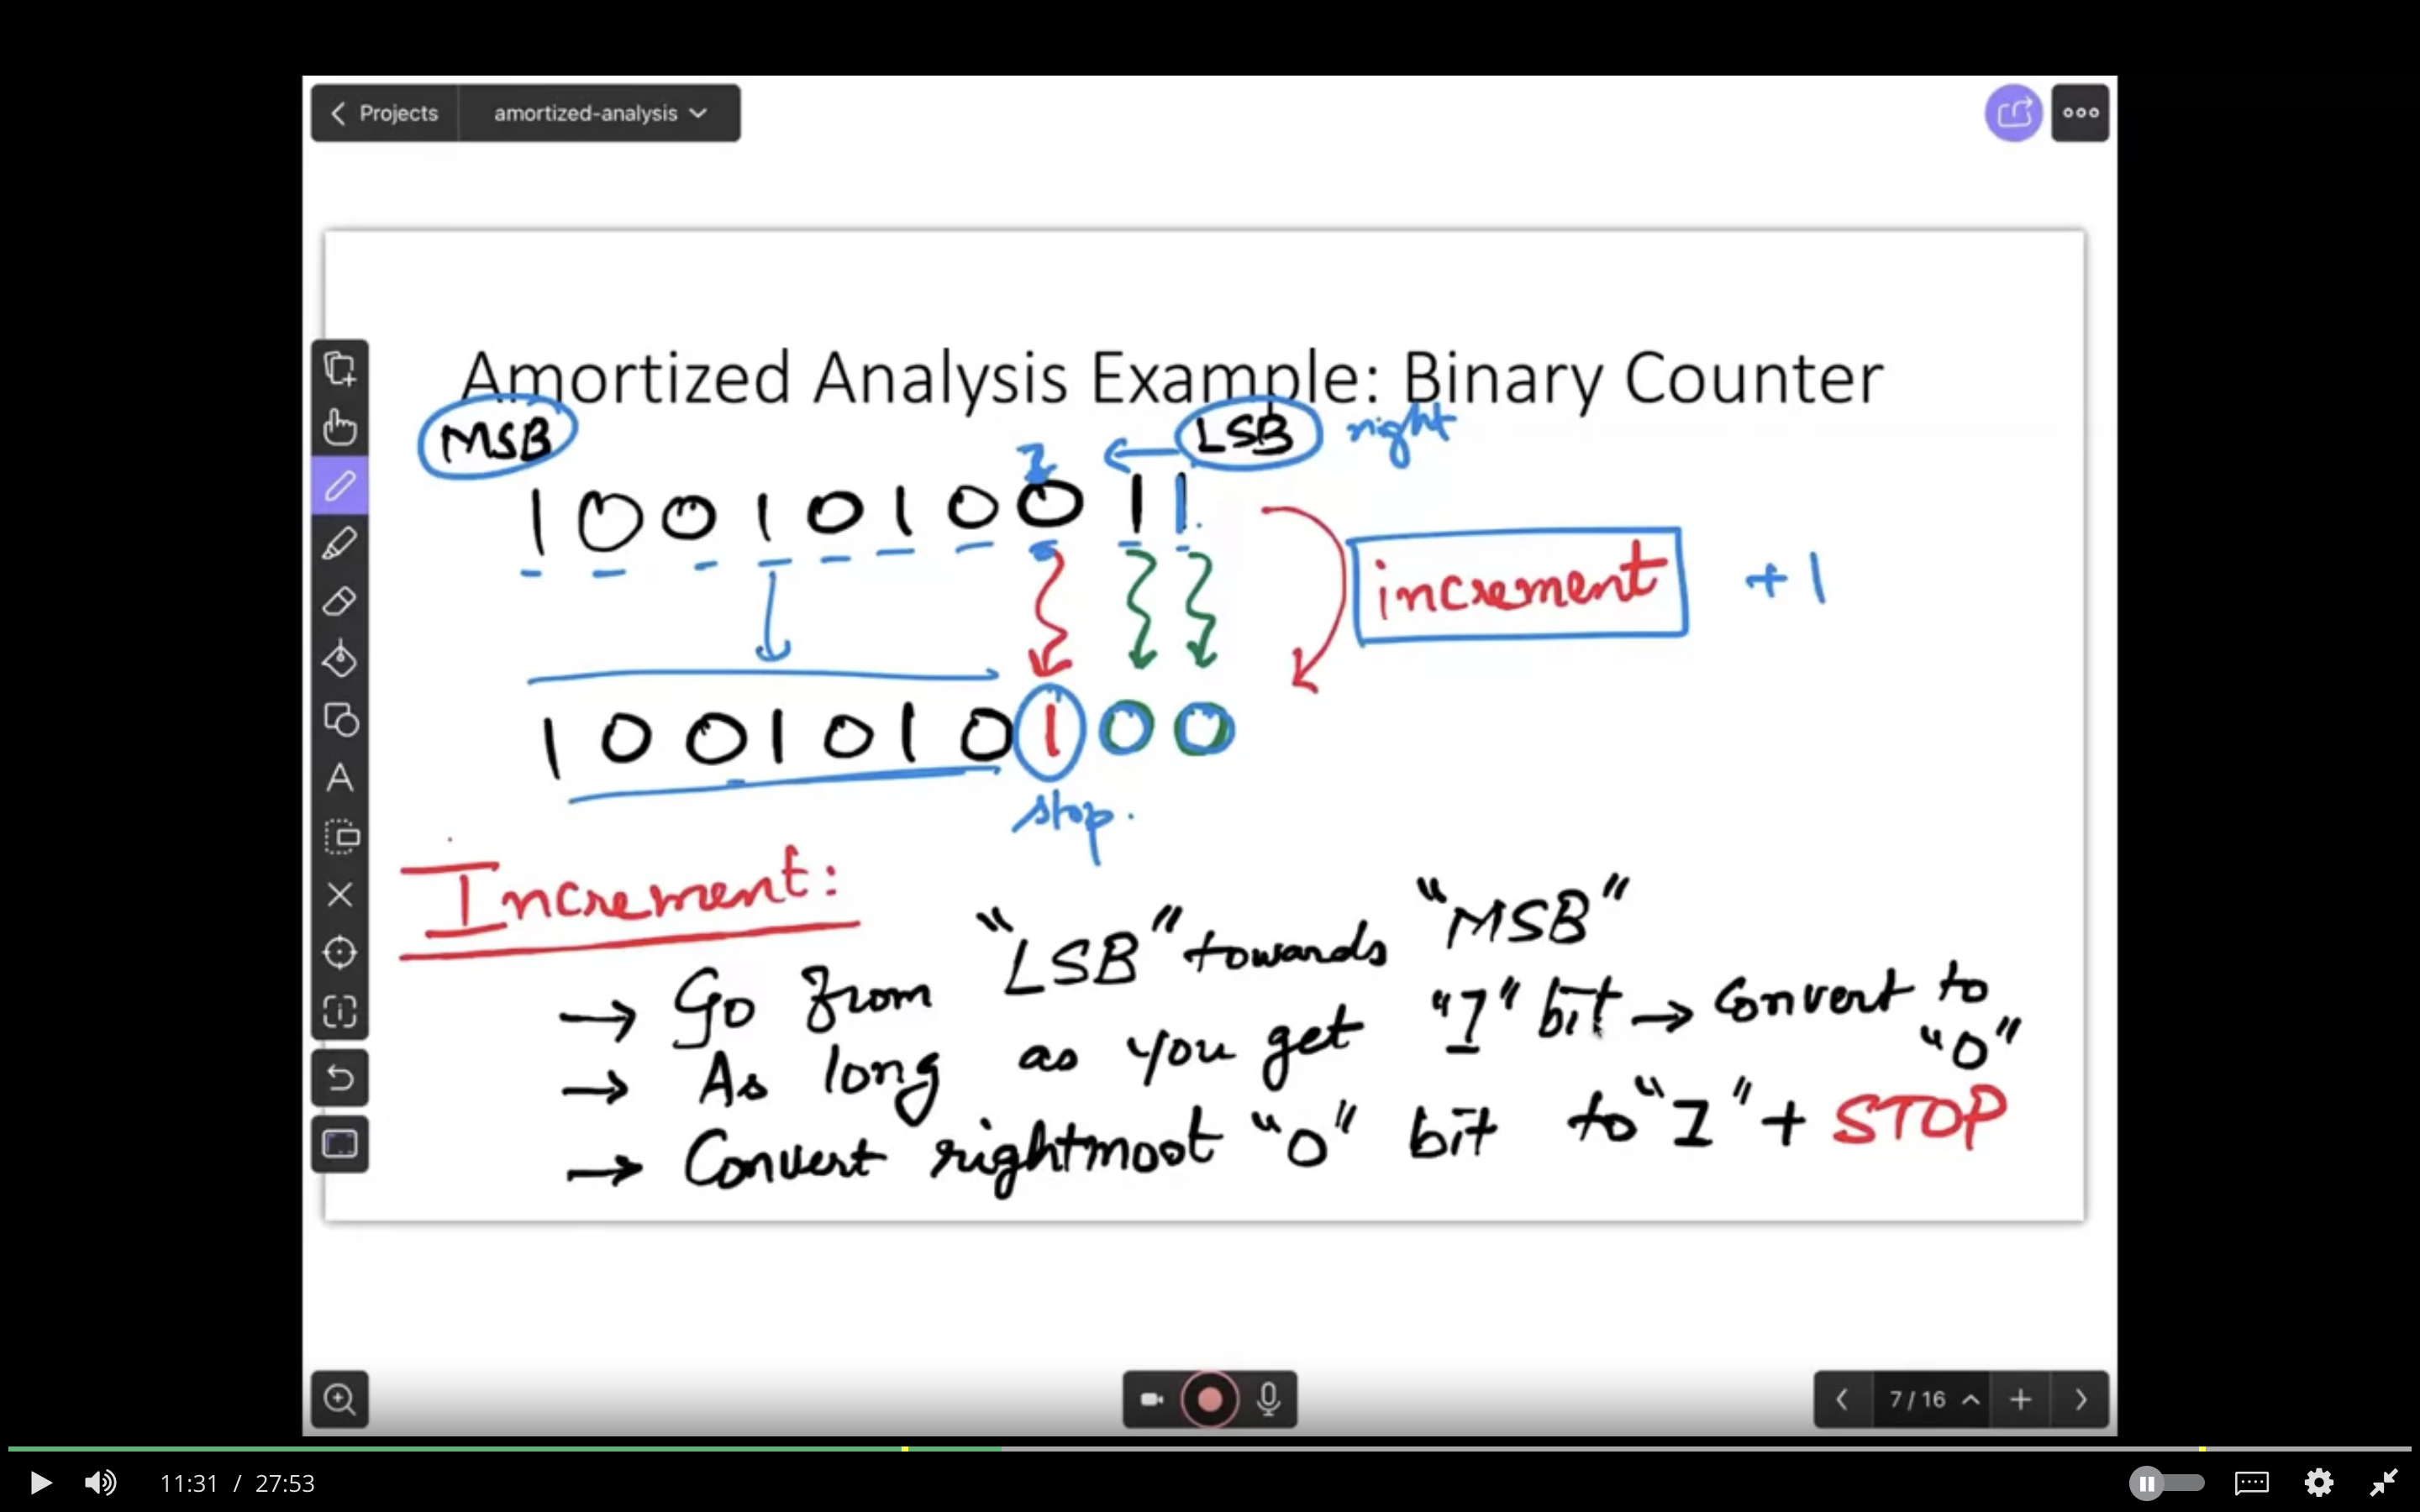 Projects amortized-analysis
Amortized Analysis Example: Binary Counter
MSB LSB right
1 0 0 1 0 1 0 0 1 1
increment +1
1 0 0 1 0 1 0 1 0 0
stop.
Increment:
→ Go from "LSB" towards "MSB"
→ As long as you get "1" bit → Convert to "0"
→ Convert rightmost "0" bit to "1" + STOP
7 / 16
11:31 / 27:53